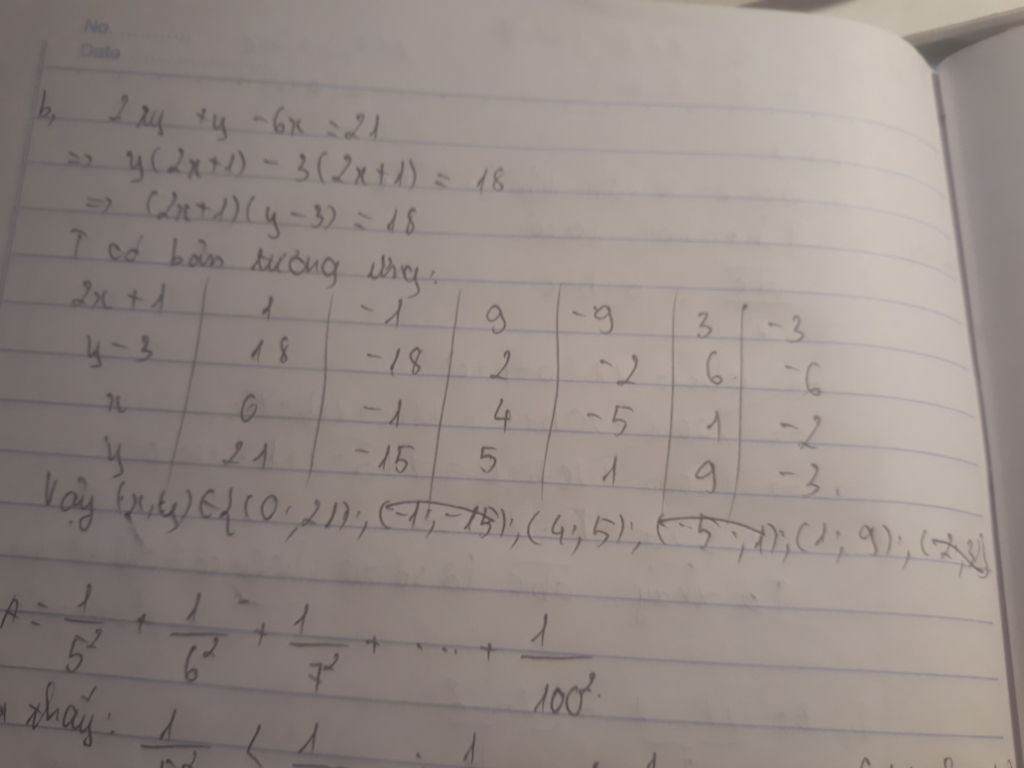 No.
Date
b, 2xy + y - 6x = 21
=> y(2x+1) - 3(2x+1) = 18
=> (2x+1)(y-3) = 18
T có bản tương ứng:
2x+1 | 1 | -1 | 9 | -9 | 3 | -3
y-3 | 18 | -18 | 2 | -2 | 6 | -6
x | 0 | -1 | 4 | -5 | 1 | -2
y | 21 | -15 | 5 | 1 | 9 | -3.
Vậy (x,y) ∈ {(0; 21); (-1; -15); (4; 5); (-5; 1); (1; 9);
A = 1/5² + 1/6² + 1/7² + .... + 1/100².
thấy: 1/5² < 1